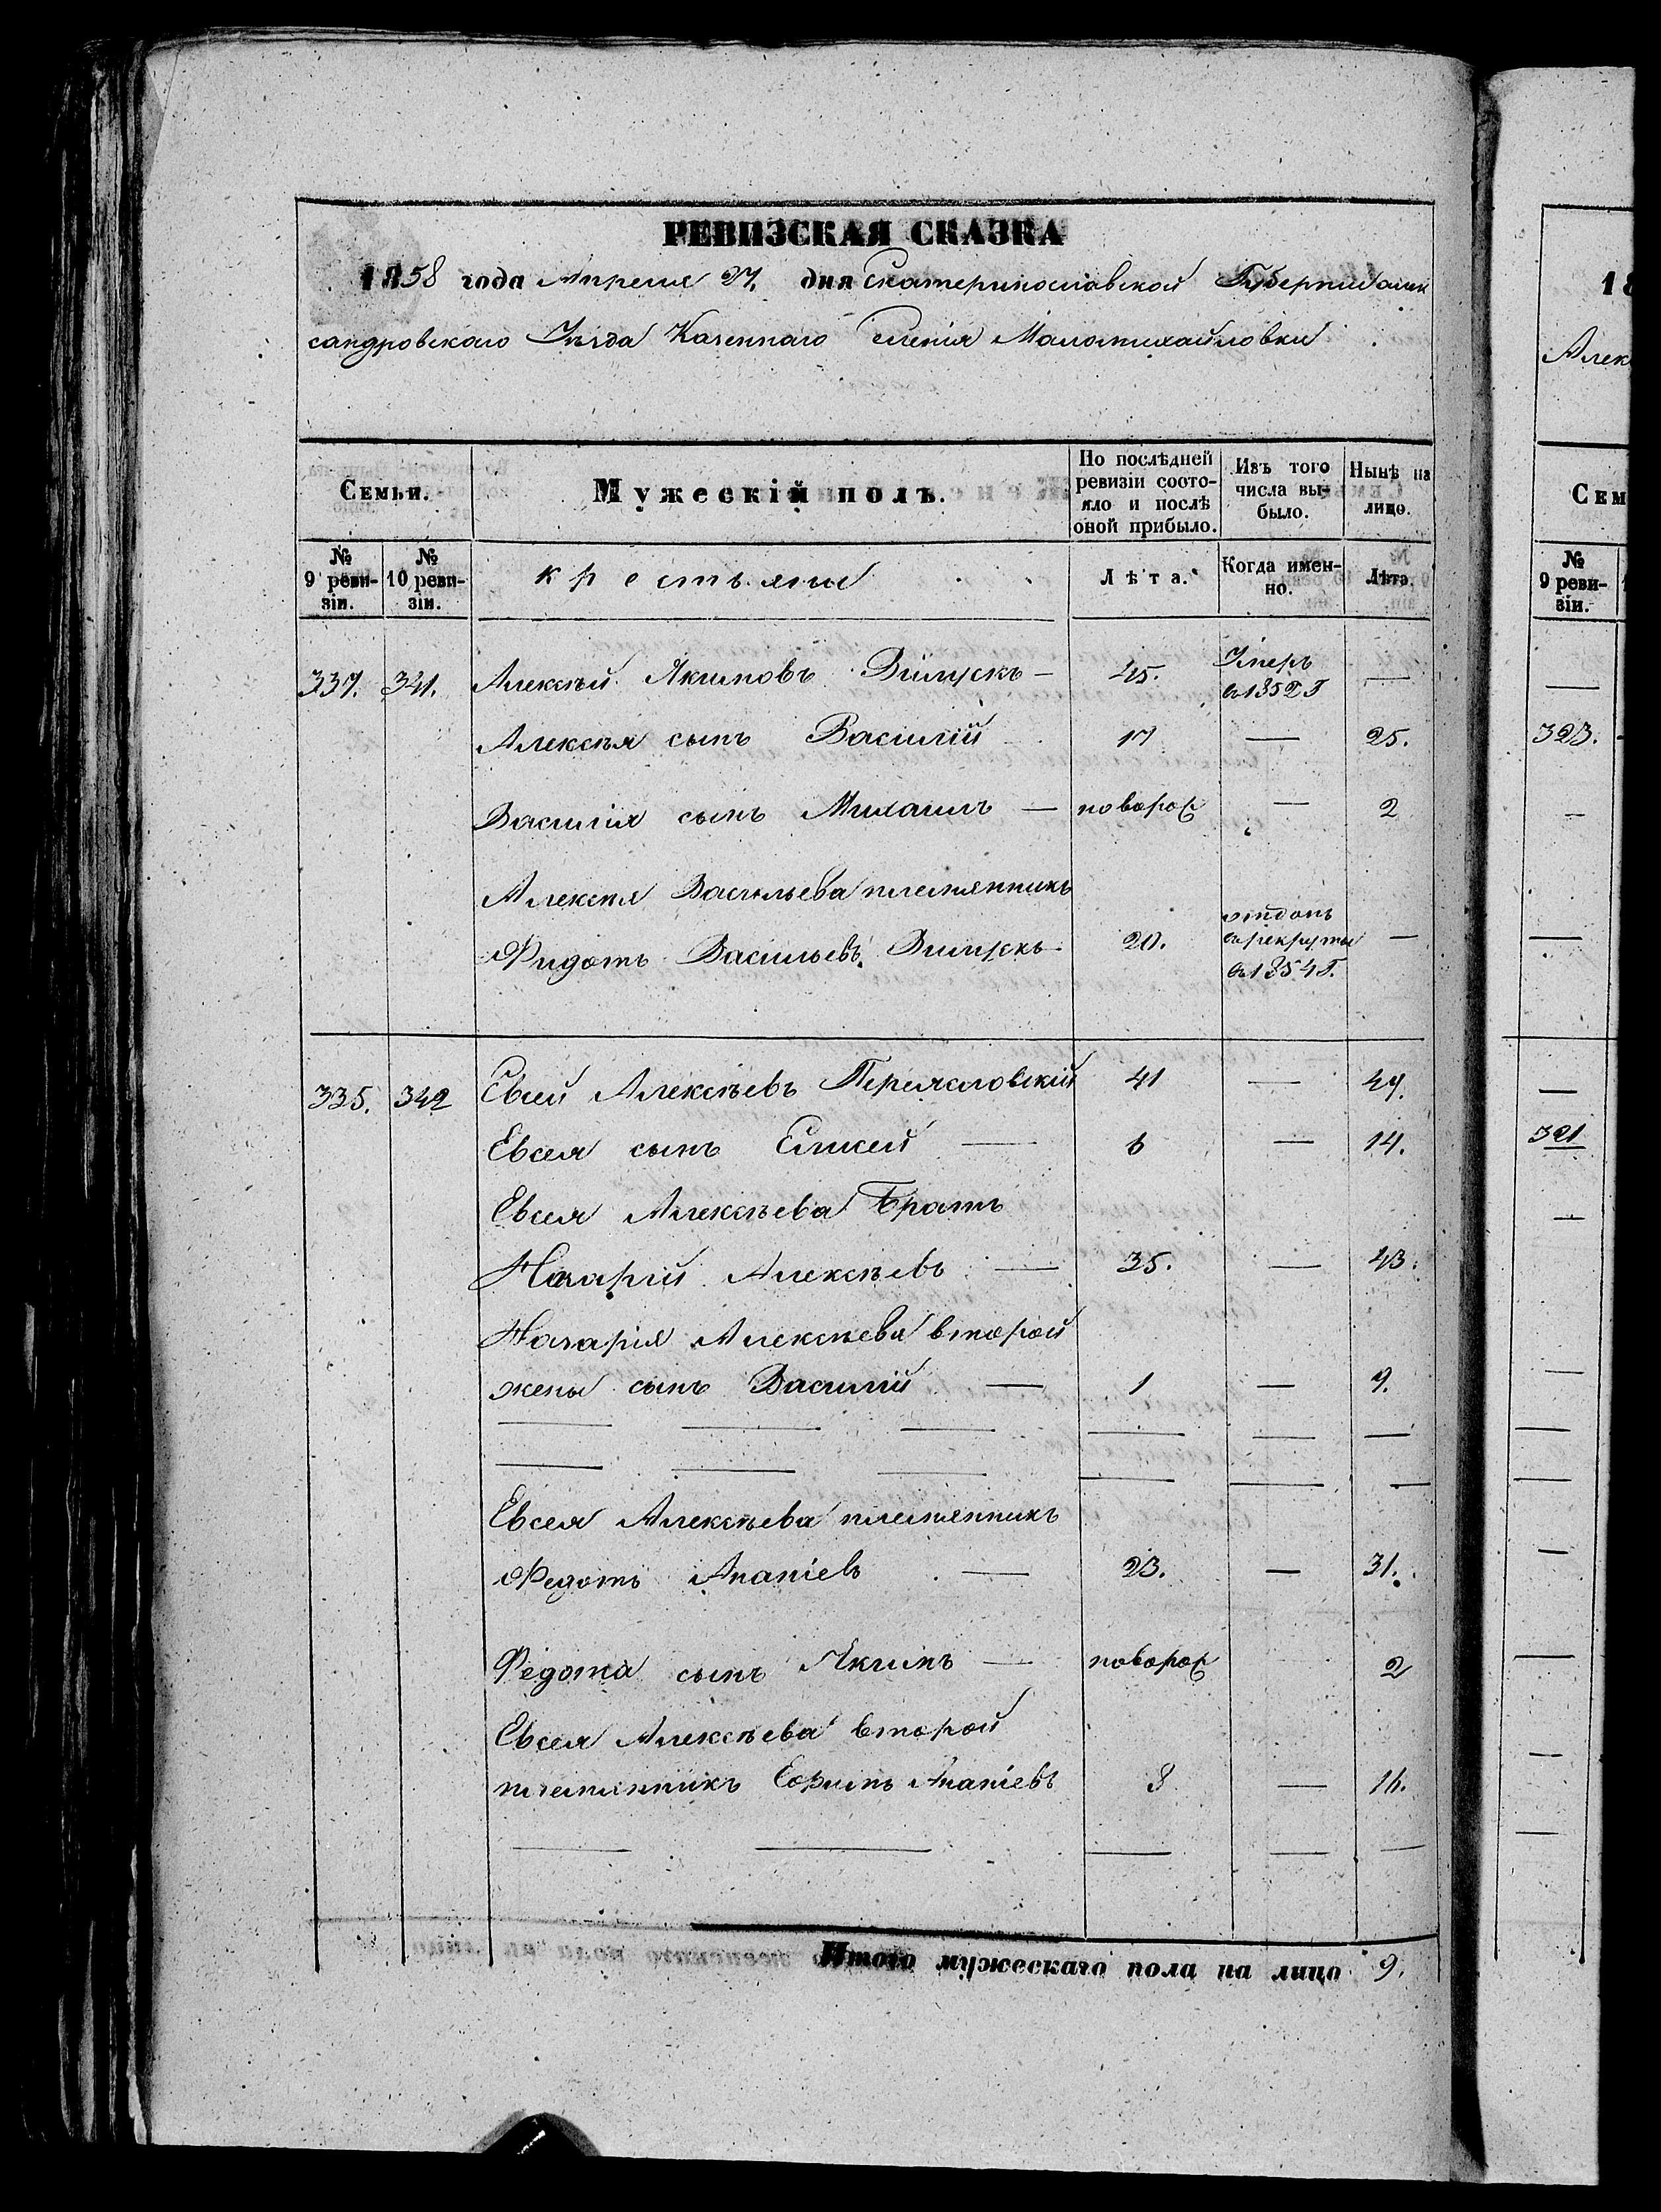 РЕВИЗСКАЯ СКАЗКА
1858 года Апреля 27. дня Екатеринославской Губернии Алек
сандровскаго Уѣзда Казеннаго Селенія Маломихайловки
Семьи. Мужескій полъ. По послѣдней ревизіи состояло и послѣ оной прибыло. Изъ того числа выбыло. Нынѣ на лицо.
№ 9 ревизіи. № 10 ревизіи. крестьяне Лѣта. Когда именно. Лѣта.
337. 341. Алексѣй Якимовъ — 45. Умеръ в 1852 Г —
Алексѣя сынъ Василій 17 — 25.
Василія сынъ Михаилъ — новорож — 2
Алексѣя Васильева племянникъ
Фидотъ Васильевъ 20. отданъ в рекруты в 1854 Г. —
335. 342 Евсей Алексѣевъ Переясловскій 41 — 49.
Евсея сынъ Елисей — 6 — 14.
Евсея Алексѣева Братъ
Назарій Алексѣевъ — 35. — 43.
Назарія Алексѣева второй
жены сынъ Василій — 1 — 9.
Евсея Алексѣева племянникъ
Федотъ Ананіевъ — 23. — 31.
Федота сынъ Якимъ — новорож 2
Евсея Алексѣева второй
племянникъ Ефимъ Ананіевъ 8 — 16.
Итого мужескаго пола на лицо 9.
18
Алек
Сем
№ 9 ревизіи.
323.
321